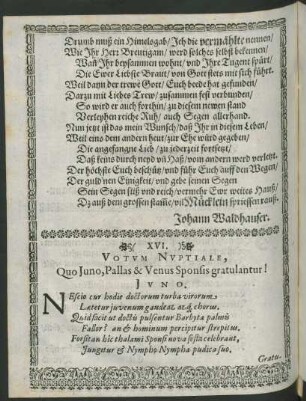 Drumb muß ein Himelsgab / Ich die vermählte nennen /
Wie Ihr Herr Breutigam / werd solches selbst bekennen /
Wañ Ihr beysammen wohnt / vnd Ihre Tugent spürt /
Die Ewer Liebste Braut / von Gott stets mit sich führt.
Weil dann der trewe Gott / Euch beede hat gefunden /
Darzu mit Liebs Trew / zusammen fest verbunden /
So wird er auch forthin / zu diesem newen stand
Verleyhen reiche Ruh / auch Segen allerhand.
Nun jetzt ist das mein Wunsch / daß Ihr in diesem Leben /
Weil eins dem andern heut / zur Ehe würd gegeben /
Die angefangne Lieb / zu jederzeit fortsetzt /
Daß keins durch neyd vñ Haß / vom andern werd verletzt.
Der höchste Euch beschütz / vnd führ Euch auff den Wegen /
Der güldnen Einigkeit / vnd gebe seinen Segen
Sein Segen süß vnd reich / vermehr Ewr weites Hauß /
Dz auß dem grossen stañe / viel Mücklein spriessen rauß.
Johann Waldhauser.
XVI.
VOTUM NVPTIALE,
Quo Juno, Pallas & Venus Sponsis gratulantur!
JVNO.
NEscio cur hodie doctorum turba virorum
Lætetur juvenum gaudeat atq; chorus.
Quid sicit ut doctis pulsentur Barbyta palmis
Fallor? an & hominum percipitur strepitus.
Forsitan hic thalami Sponsi nova festa celebrant,
Jungatur & Nympho Nympha pudica suo.
Gratu-